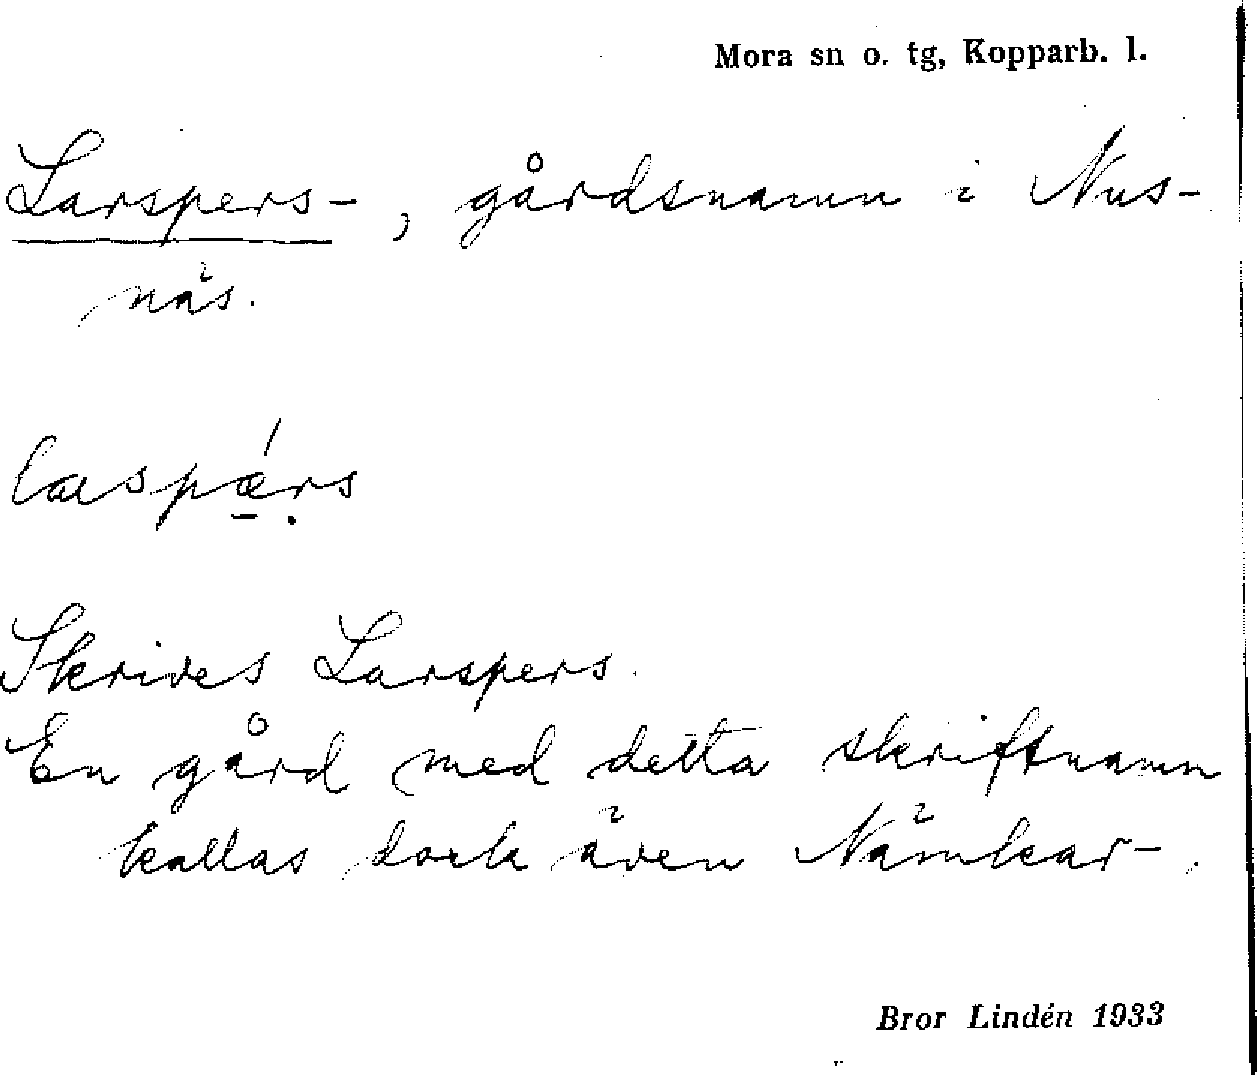 Mora sn o. tg, Kopparb. l.
Larspers-, gårdsnamn i Nus-
näs.
Skrives Larspers.
En gård med detta skriftnamn
kallas dock även Nämkar-.
Bror Lindén 1933